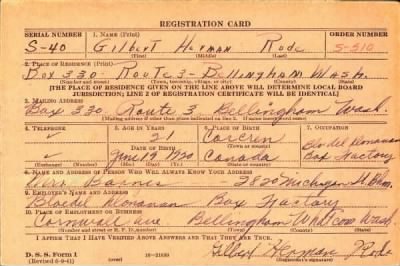 REGISTRATION CARD
SERIAL NUMBER 1. NAME (Print) ORDER NUMBER
S-40 Gilbert Herman Rode S-510
(First) (Middle) (Last)
2. PLACE OF RESIDENCE (Print)
Box 330 - Route 3 - Bellingham, Wash.
(Number and street) (Town, township, village, or city) (County) (State)
[THE PLACE OF RESIDENCE GIVEN ON THE LINE ABOVE WILL DETERMINE LOCAL BOARD
JURISDICTION; LINE 2 OF REGISTRATION CERTIFICATE WILL BE IDENTICAL]
3. MAILING ADDRESS
Box 330 Route 3 Bellingham Wash.
4. TELEPHONE 5. AGE IN YEARS 6. PLACE OF BIRTH 7. OCCUPATION
21 Bloedel Donovan
DATE OF BIRTH Box Factory
June 19 1920 Canada
8. NAME AND ADDRESS OF PERSON WHO WILL ALWAYS KNOW YOUR ADDRESS
2820 Michigan St. Bham
9. EMPLOYER'S NAME AND ADDRESS
Bloedel Donovan Box Factory
10. PLACE OF EMPLOYMENT OR BUSINESS
Cornwall Ave Bellingham Whatcom Wash.
(Number and street or R. F. D. number) (Town) (County) (State)
I AFFIRM THAT I HAVE VERIFIED ABOVE ANSWERS AND THAT THEY ARE TRUE.
D. S. S. Form 1 Gilbert Herman Rode
(Revised 6-9-41)